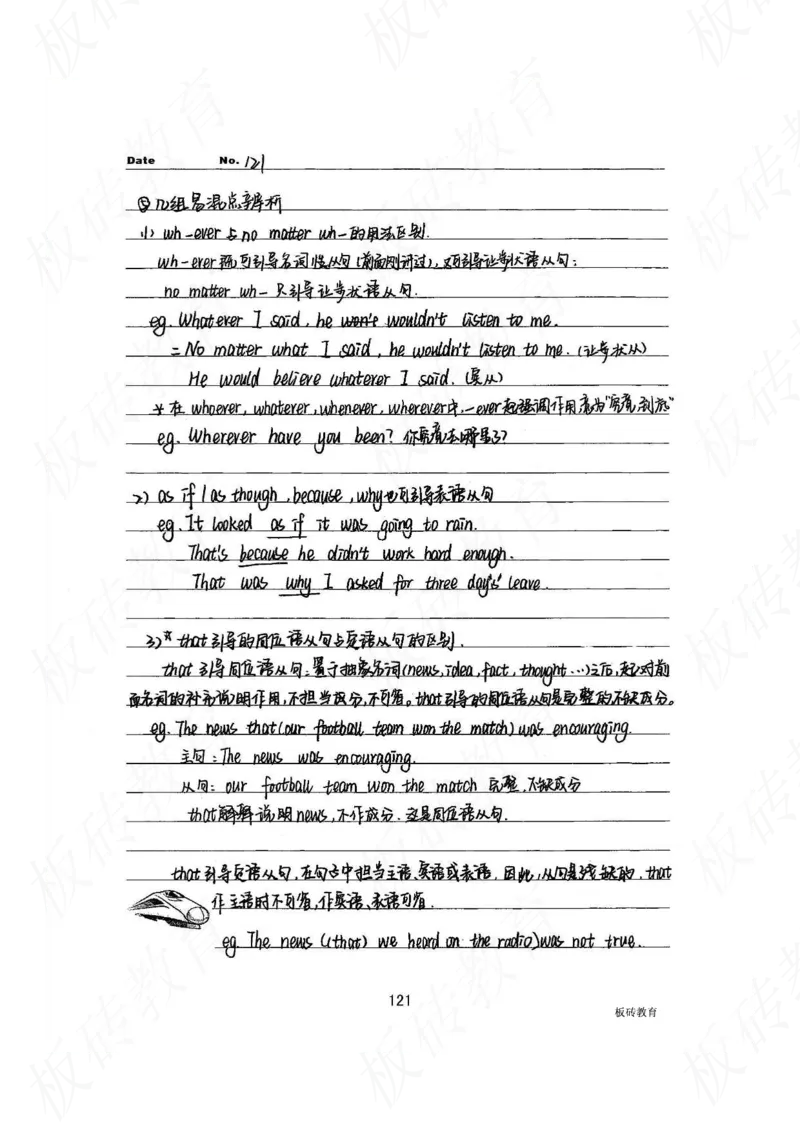 Date No. 121
④ 几组易混点辨析
(1) wh-ever 与 no matter wh- 的用法区别.
wh-ever 既可引导名词性从句(前面刚讲过),又可引导让步状语从句;
no matter wh- 只引导让步状语从句.
eg. Whatever I said, he won't wouldn't listen to me.
= No matter what I said, he wouldn't listen to me. (让步状从)
He would believe whatever I said. (宾从)
* 在 whoever, whatever, whenever, wherever中, -ever 起强调作用 意为"究竟,到底"
eg. Wherever have you been? 你究竟去哪里了?
2) as if / as though, because, why也可引导表语从句
eg. It looked as if it was going to rain.
That's because he didn't work hard enough.
That was why I asked for three days' leave.
3)* that引导的同位语从句与定语从句的区别.
that 引导同位语从句: 置于抽象名词(news, idea, fact, thought …)之后, 起对前
面名词的补充说明作用, 不担当成分, 不可省。that引导的同位语从句是完整的,不缺成分。
eg. The news that (our football team won the match) was encouraging.
主句: The news was encouraging.
从句: our football team won the match 完整, 不缺成分
that解释说明news, 不作成分. 这是同位语从句.
that引导定语从句, 在句子中担当主语、宾语或表语, 因此, 从句是残缺的, that
作主语时不可省, 作宾语、表语可省.
eg. The news ((that) we heard on the radio) was not true.
121
板砖教育